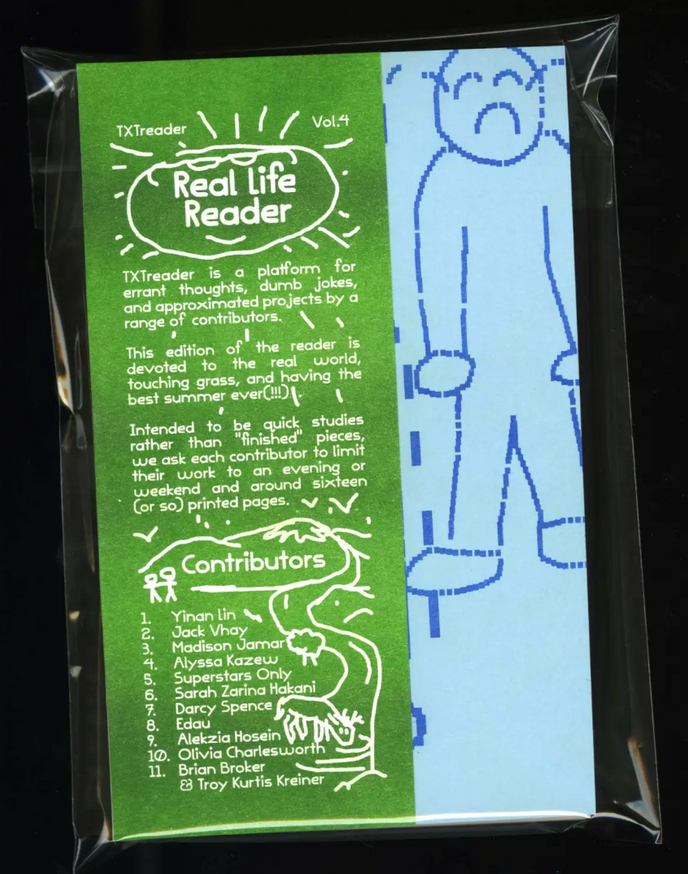 TXTreader
Vol.4
Real Life
Reader
TXTreader is a platform for
errant thoughts, dumb jokes,
and approximated projects by a
range of contributors.
This edition of the reader is
devoted to the real world,
touching grass, and having the
best summer ever(!!!)
Intended to be quick studies
rather than "finished" pieces,
we ask each contributor to limit
their work to an evening or
weekend and around sixteen
(or so) printed pages.
Contributors
1. Yinan Lin
2. Jack Vhay
3. Madison Jamar
4. Alyssa Kazew
5. Superstars Only
6. Sarah Zarina Hakani
7. Darcy Spence
8. Edau
9. Alekzia Hosein
10. Olivia Charlesworth
11. Brian Broker
& Troy Kurtis Kreiner